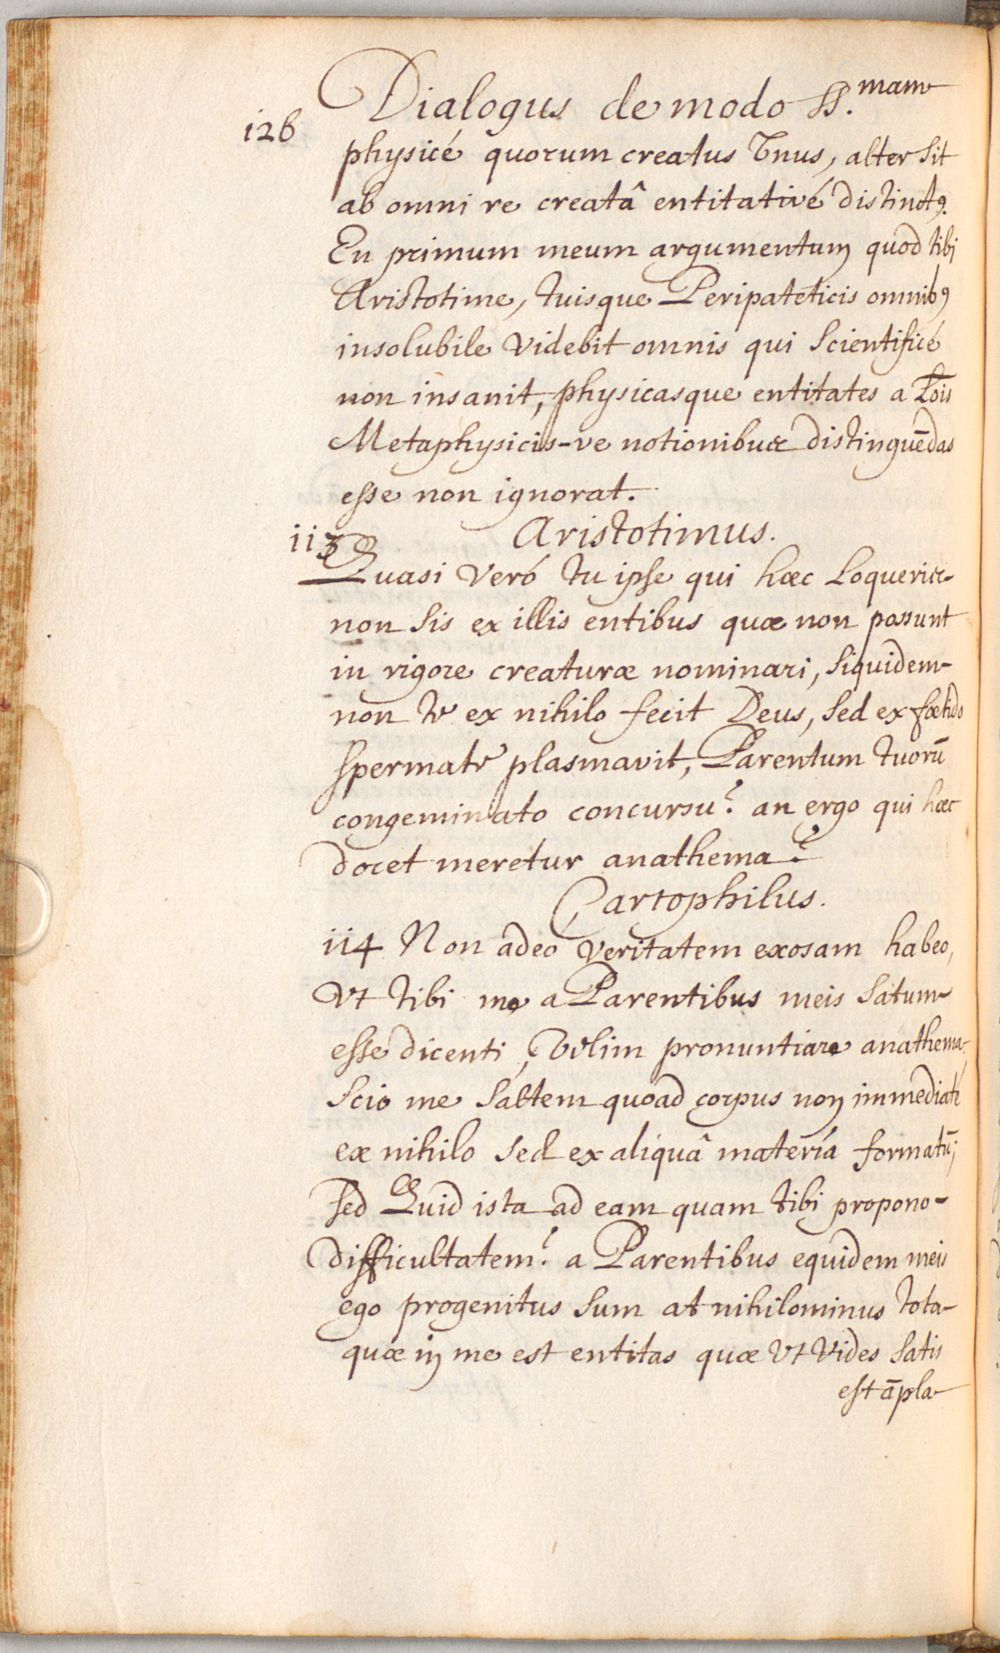 Dialogus de modo SS.mam
126
physicé quorum creatus Vnus, alter sit
ab omni re creatâ entitativé distinctꝰ.
En primum meum argumentum quod tibi
Aristotime, tuisque Peripateticis omnibꝰ
insolubile Videbit omnis qui Scientificé
non insanit, physicasque entitates a Lo͞is
Metaphysicis-ve notionibus distinguēdas
esse non ignorat.
Aristotimus.
113 Quasi Veró tu ipse qui hæc Loqueris
non sis ex illis entibus quæ non possunt
in rigore creaturæ nominari, siquidem
non te ex nihilo fecit Deus, sed ex fœtido
spermate plasmavit, Parentum tuorū
congeminato concursu? an ergo qui hæc
docet meretur anathema?
Cartophilus.
114 Non adeo Veritatem exosam habeo,
Vt tibi me a Parentibus meis Satum
esse dicenti, Velim pronuntiare anathema,
Scio me Saltem quoad corpus non immediatè
ex nihilo sed ex aliquâ materiâ formatū;
sed Quid ista ad eam quam tibi propono
difficultatem? a Parentibus equidem meis
ego progenitus sum at nihilominus tota
quæ in me est entitas quæ Vt Vides Satis
est āpla